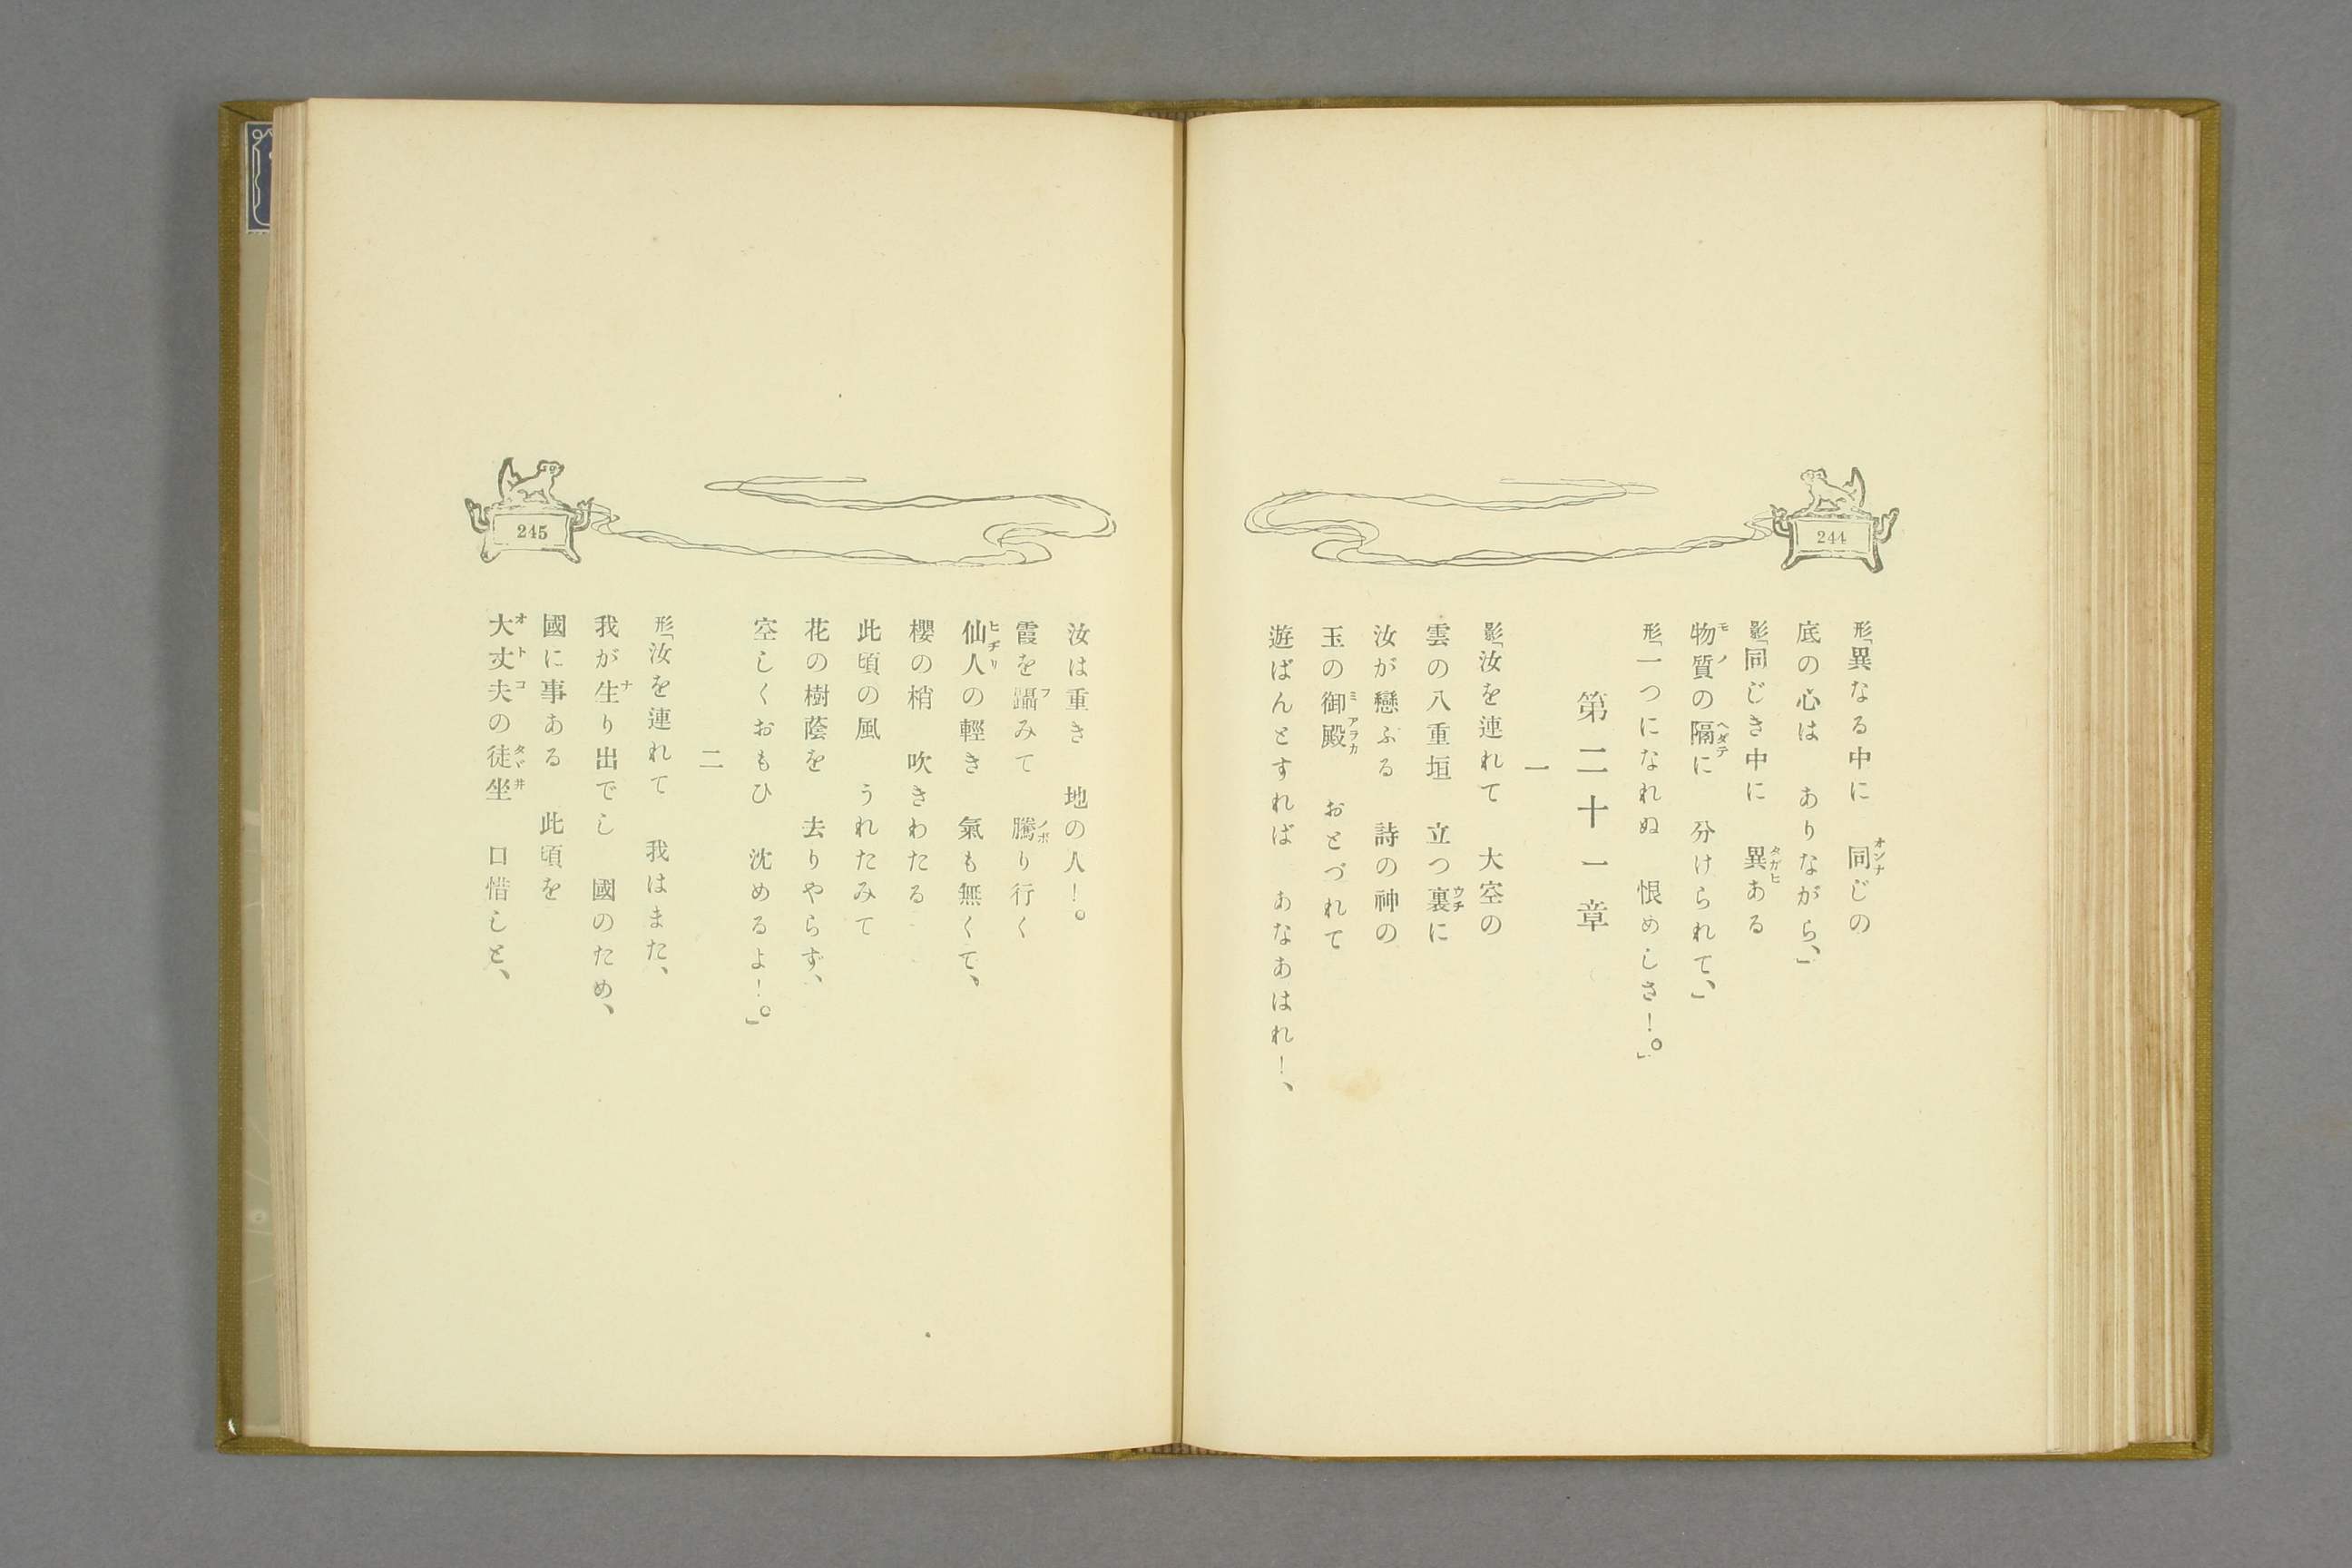 244
形「異なる中に　同じの
底の心は　ありながら、」
影「同じき中に　異ある
物質の隔に　分けられて、」
形「一つになれぬ　恨めしさ！。」
第二十一章
一
影「汝を連れて　大空の
雲の八重垣　立つ裏に
汝が戀ぶる　詩の神の
玉の御殿　おとづれて
遊ばんとすれば　あなあはれ！、
245
汝は重き　地の人！。
霞を躡みて　騰り行く
仙人の輕き　氣も無くて、
櫻の梢　吹きわたる
此頃の風　うれたみて
花の樹蔭を　去りやらず、
空しくおもひ　沈めるよ！。」
二
形「汝を連れて　我はまた、
我が生り出でし　國のため、
國に事ある　此頃を
大丈夫の徒坐　口惜しと、